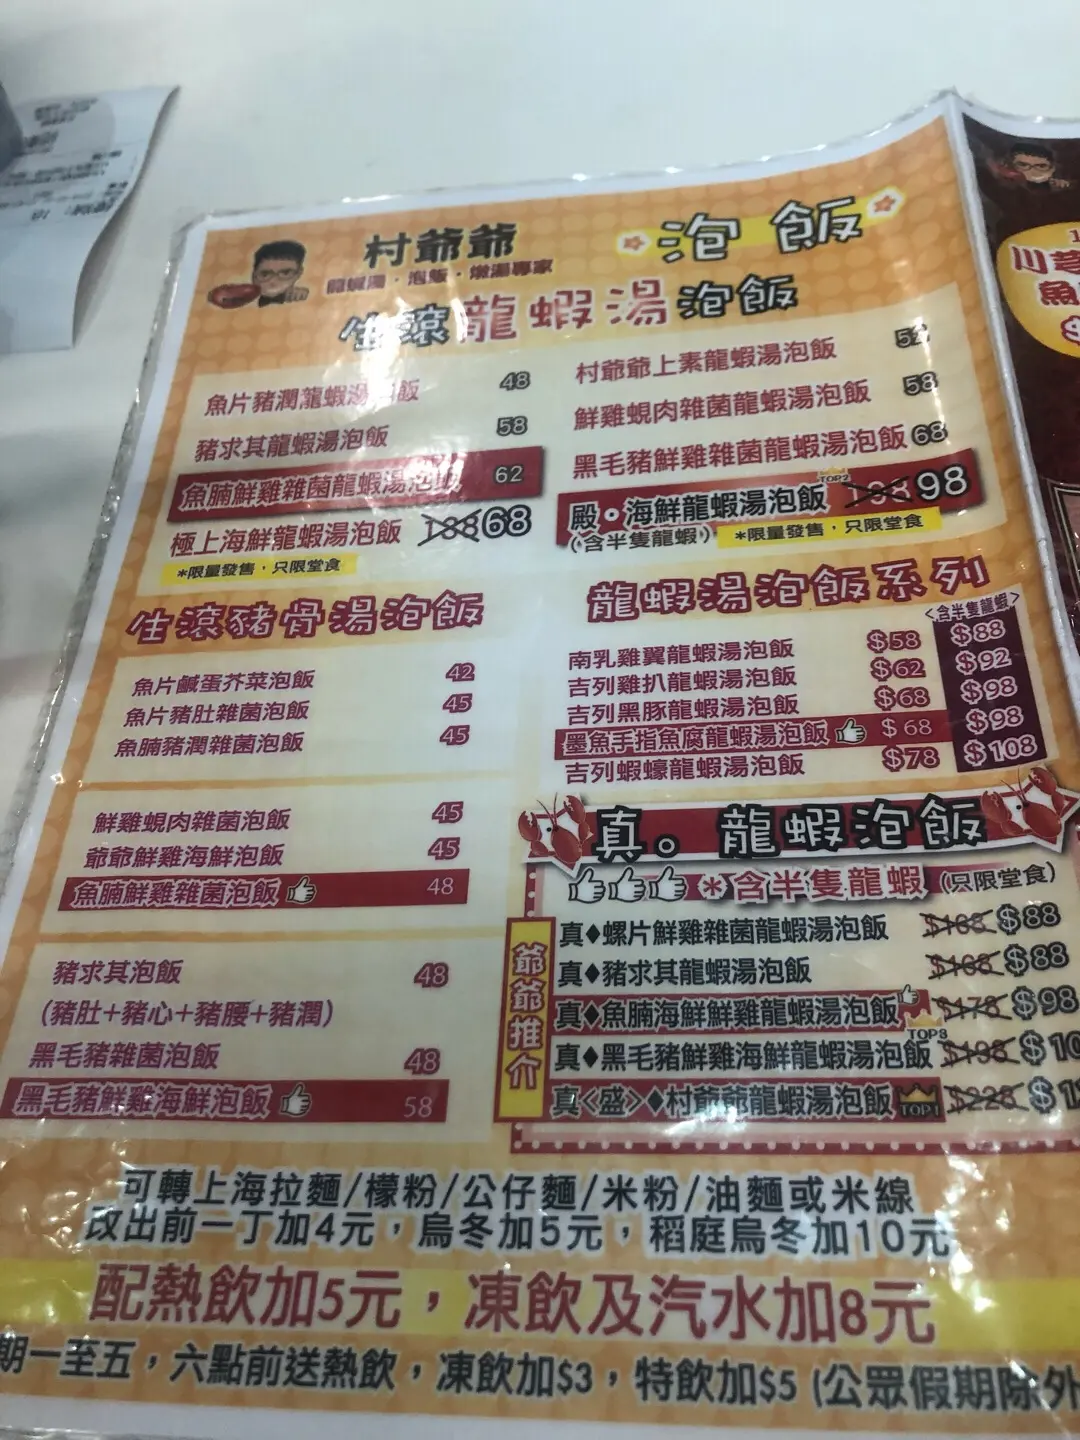 村爺爺
龍蝦湯・泡飯・燉湯專家
泡飯
生滾龍蝦湯泡飯
魚片豬潤龍蝦湯泡飯 48
豬求其龍蝦湯泡飯 58
魚腩鮮雞雜菌龍蝦湯泡飯 62
極上海鮮龍蝦湯泡飯 188 68
*限量發售,只限堂食
村爺爺上素龍蝦湯泡飯 52
鮮雞蜆肉雜菌龍蝦湯泡飯 58
黑毛豬鮮雞雜菌龍蝦湯泡飯 68
TOP2
殿•海鮮龍蝦湯泡飯 98
(含半隻龍蝦) *限量發售,只限堂食
生滾豬骨湯泡飯
魚片鹹蛋芥菜泡飯 42
魚片豬肚雜菌泡飯 45
魚腩豬潤雜菌泡飯 45
鮮雞蜆肉雜菌泡飯 45
爺爺鮮雞海鮮泡飯 45
魚腩鮮雞雜菌泡飯 48
豬求其泡飯 48
(豬肚+豬心+豬腰+豬潤)
黑毛豬雜菌泡飯 48
黑毛豬鮮雞海鮮泡飯 58
龍蝦湯泡飯系列
<含半隻龍蝦>
南乳雞翼龍蝦湯泡飯 $58 $88
吉列雞扒龍蝦湯泡飯 $62 $92
吉列黑豚龍蝦湯泡飯 $68 $98
墨魚手指魚腐龍蝦湯泡飯 $68 $98
吉列蝦蠔龍蝦湯泡飯 $78 $108
真。龍蝦泡飯
*含半隻龍蝦 (只限堂食)
爺爺推介
真♦螺片鮮雞雜菌龍蝦湯泡飯 $168 $88
真♦豬求其龍蝦湯泡飯 $168 $88
真♦魚腩海鮮鮮雞龍蝦湯泡飯 $178 $98
TOP3
真♦黑毛豬鮮雞海鮮龍蝦湯泡飯 $198 $10
真<盛>♦村爺爺龍蝦湯泡飯 TOP1 $228 $1
可轉上海拉麵/檬粉/公仔麵/米粉/油麵或米線
改出前一丁加4元,烏冬加5元,稻庭烏冬加10元
配熱飲加5元,凍飲及汽水加8元
期一至五,六點前送熱飲,凍飲加$3,特飲加$5 (公眾假期除外
川
魚